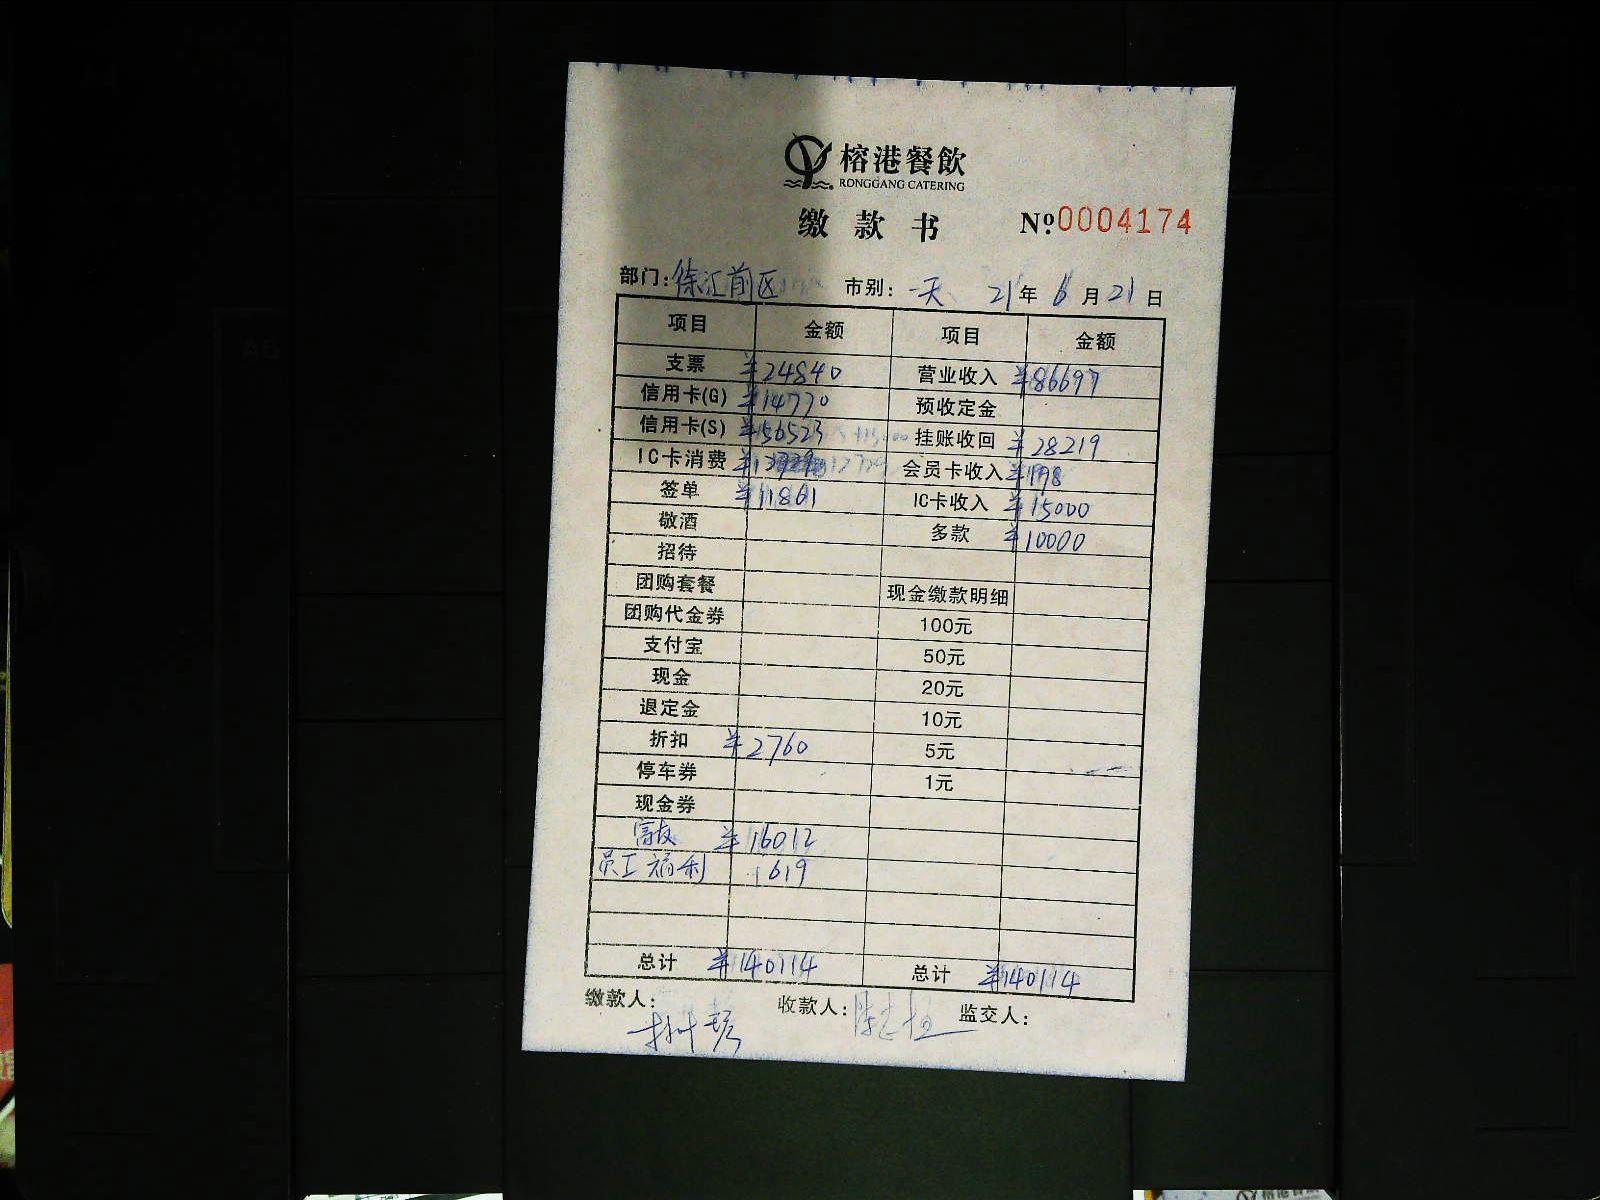 榕港餐飲
RONGGANG CATERING
缴款书 Nº0004174
部门:徐汇前区 市别:一天 21年6月21日
项目 金额 项目 金额
支票 ¥24840 营业收入 ¥86697
信用卡(G) ¥14770 预收定金
信用卡(S) ¥56523 挂账收回 ¥28219
IC卡消费 12729 会员卡收入 ¥198
签单 ¥11861 IC卡收入 ¥15000
敬酒 多款 ¥10000
招待
团购套餐 现金缴款明细
团购代金券 100元
支付宝 50元
现金 20元
退定金 10元
折扣 ¥2760 5元
停车券 1元
现金券
富友 ¥16012
员工福利 619
总计 ¥140114 总计 ¥140114
缴款人: 收款人: 监交人: